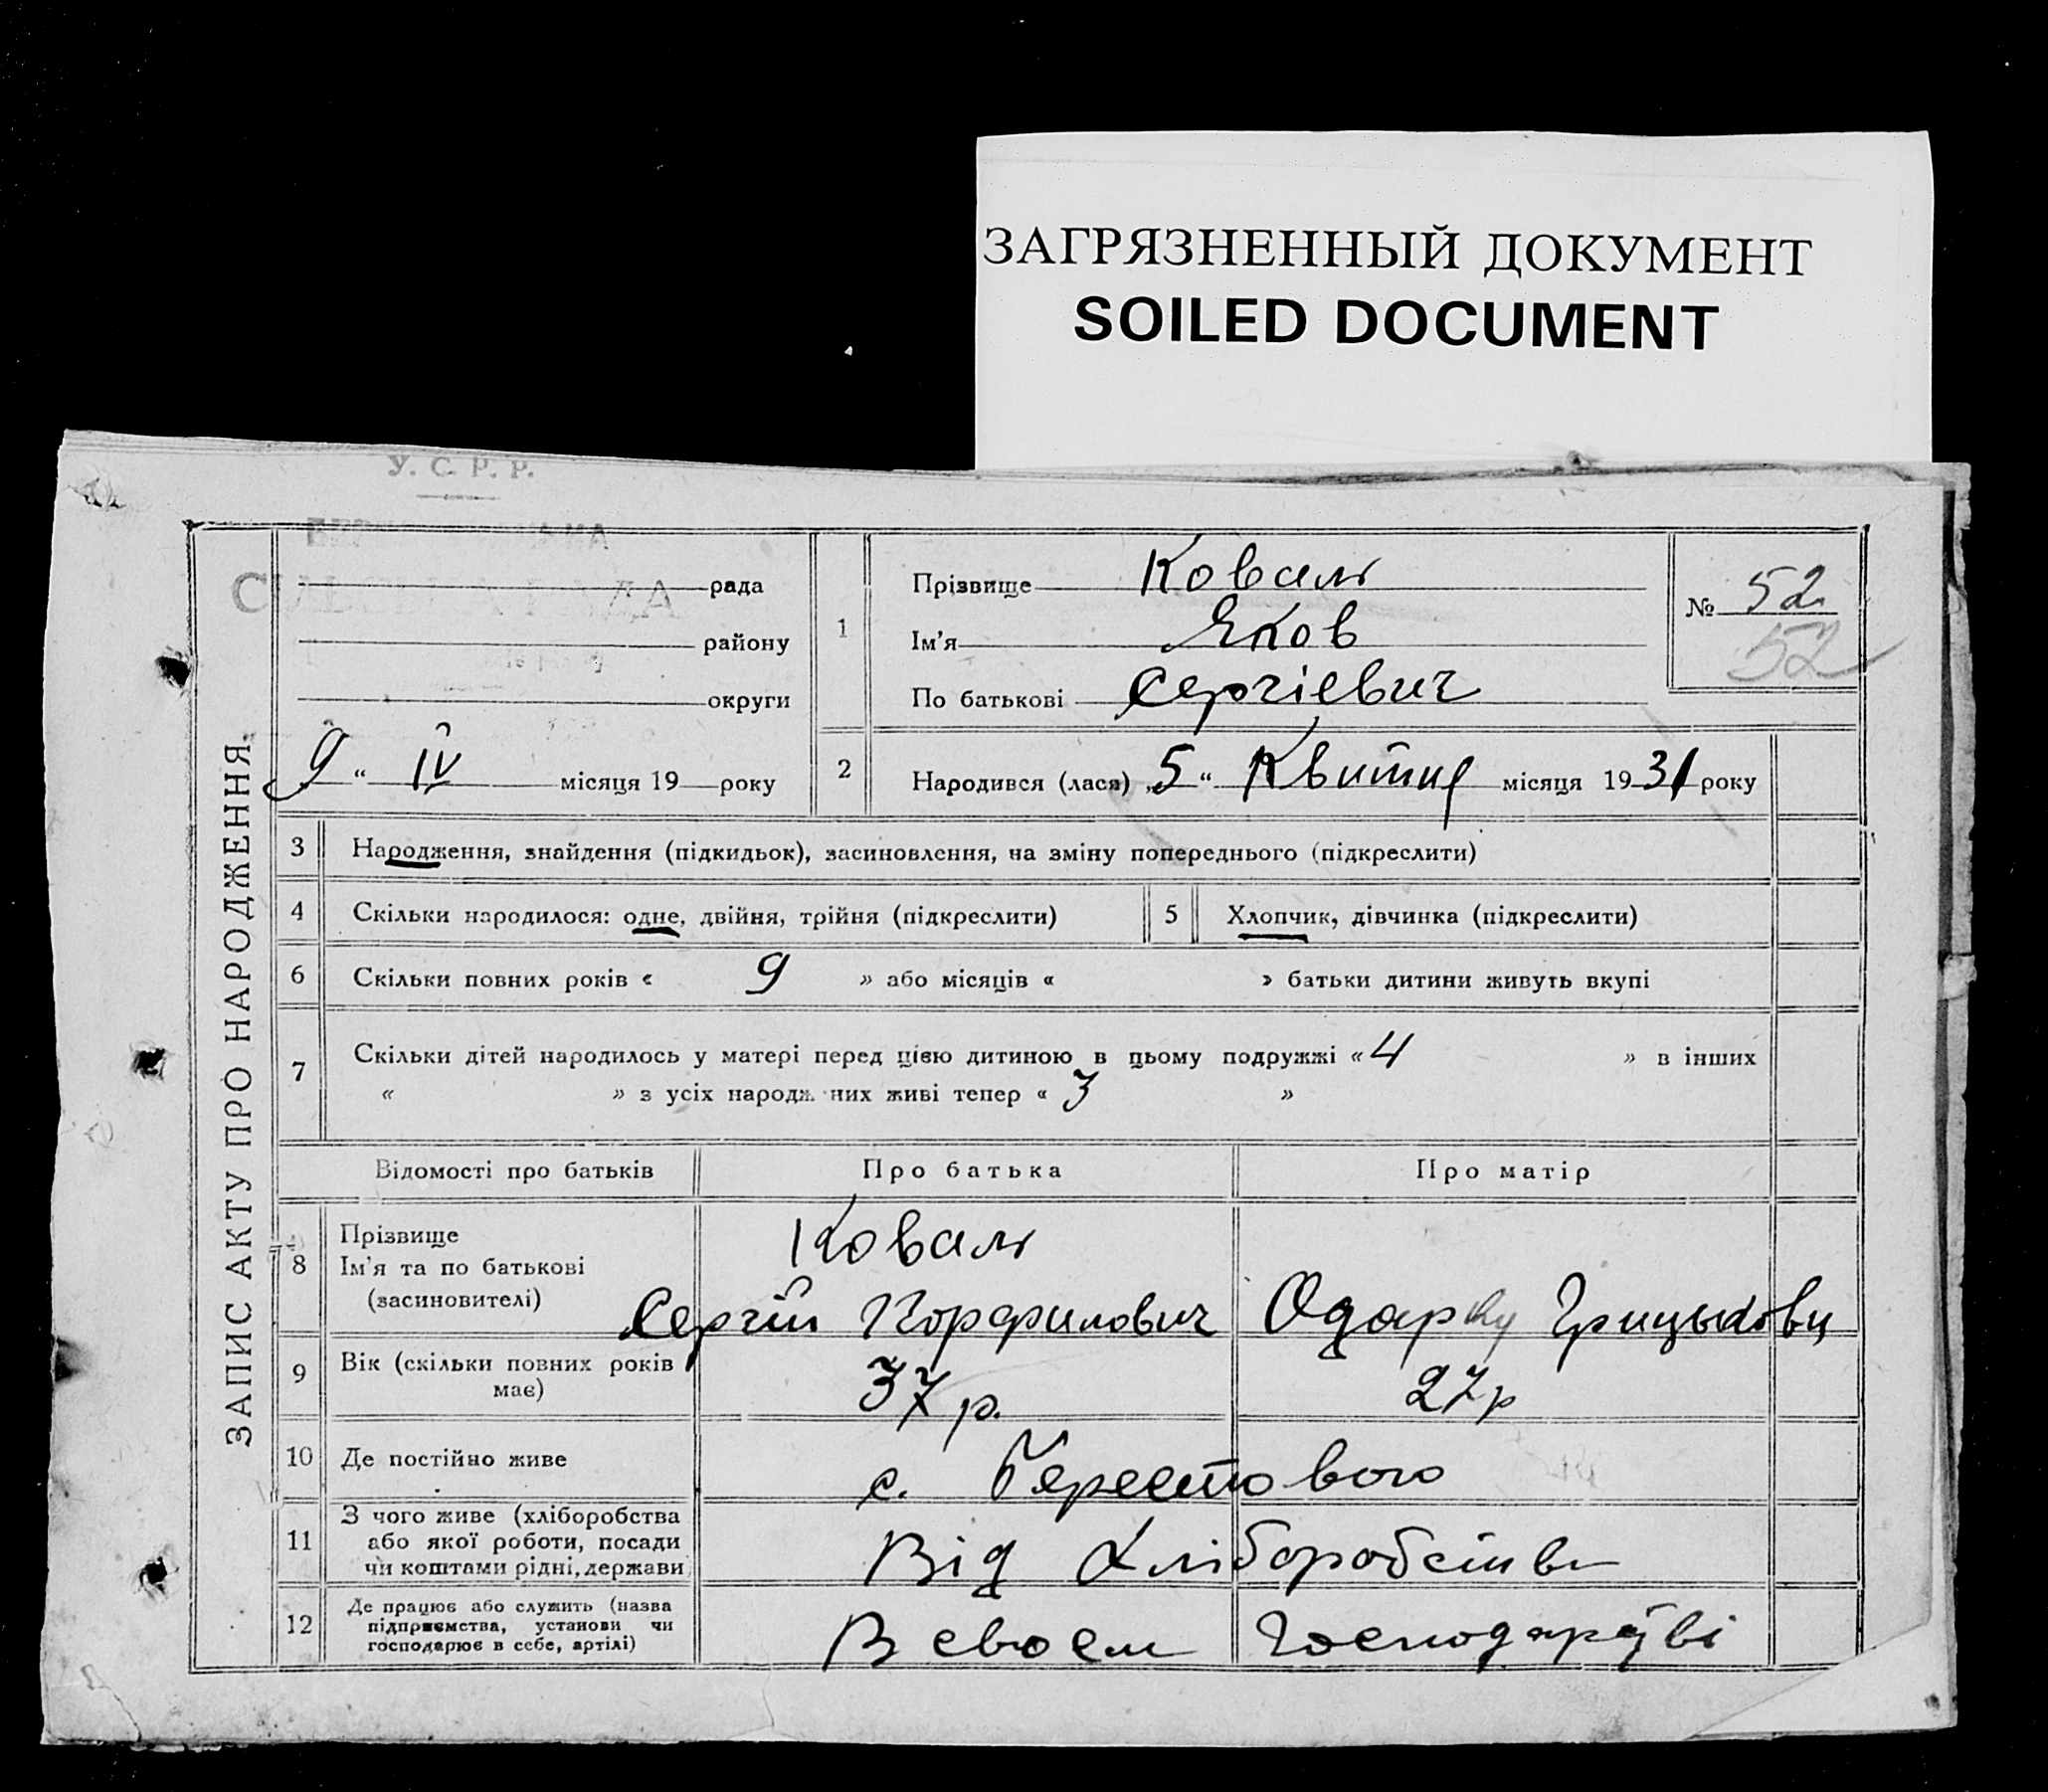 ЗАГРЯЗНЕННЫЙ ДОКУМЕНТ
SOILED DOCUMENT
У. С. Р. Р.
ЗАПИС АКТУ ПРО НАРОДЖЕННЯ
рада
району
округи
9 " IV місяця 19 року
1
Прізвище Коваль
Ім'я Яков
По батькові Сергіевич
№ 52
52
2 Народився (лася) „5 " Квитня місяця 1931 року
3 Народження, знайдення (підкидьок), засиновлення, на зміну попереднього (підкреслити)
4 Скільки народилося: одне, двійня, трійня (підкреслити) 5 Хлопчик, дівчинка (підкреслити)
6 Скільки повних років « 9 » або місяців « » батьки дитини живуть вкупі
7 Скільки дітей народилось у матері перед цією дитиною в цьому подружжі « 4 » в інших
« » з усіх народж них живі тепер « 3 »
Відомості про батьків Про батька Про матір
8 Прізвище
Ім'я та по батькові
(засиновителі)
Коваль
Сергій Порфилович Одарку
9 Вік (скільки повних років
має)
37 р. 27 р
10 Де постійно живе с. Берестового
11 З чого живе (хліборобства
або якої роботи, посади
чи коштами рідні, держави
Від Хліборобства
12 Де працює або служить (назва
підприємства, установи чи
господарює в себе, артілі)
В своем